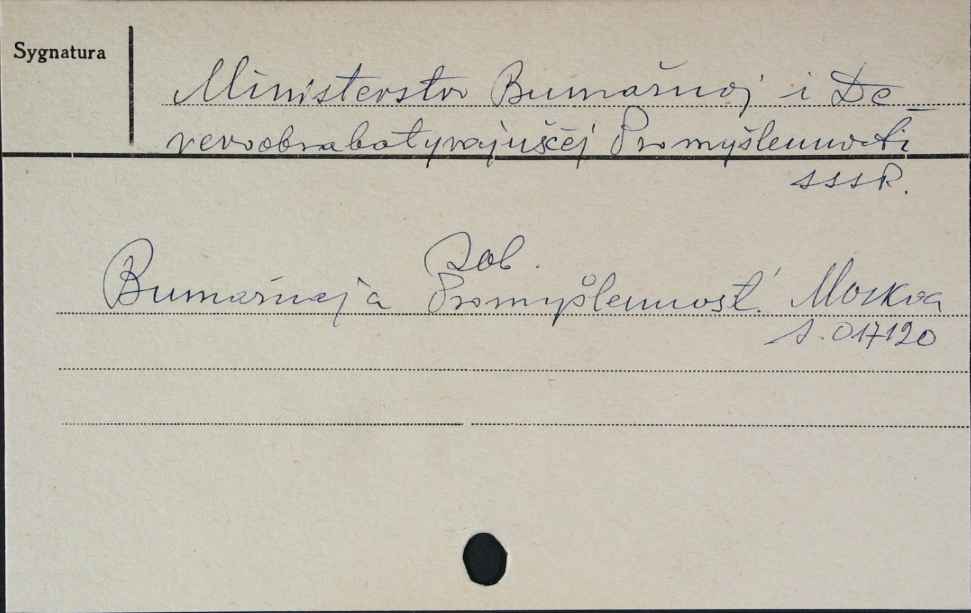 Sygnatura
Ministerstvo Bumažnoj i De-
revoobrabatyvajuščej Promyšlennosti
SSSR.
zob.
Bumažnaja Promyšlennost' Moskva
S. 017120